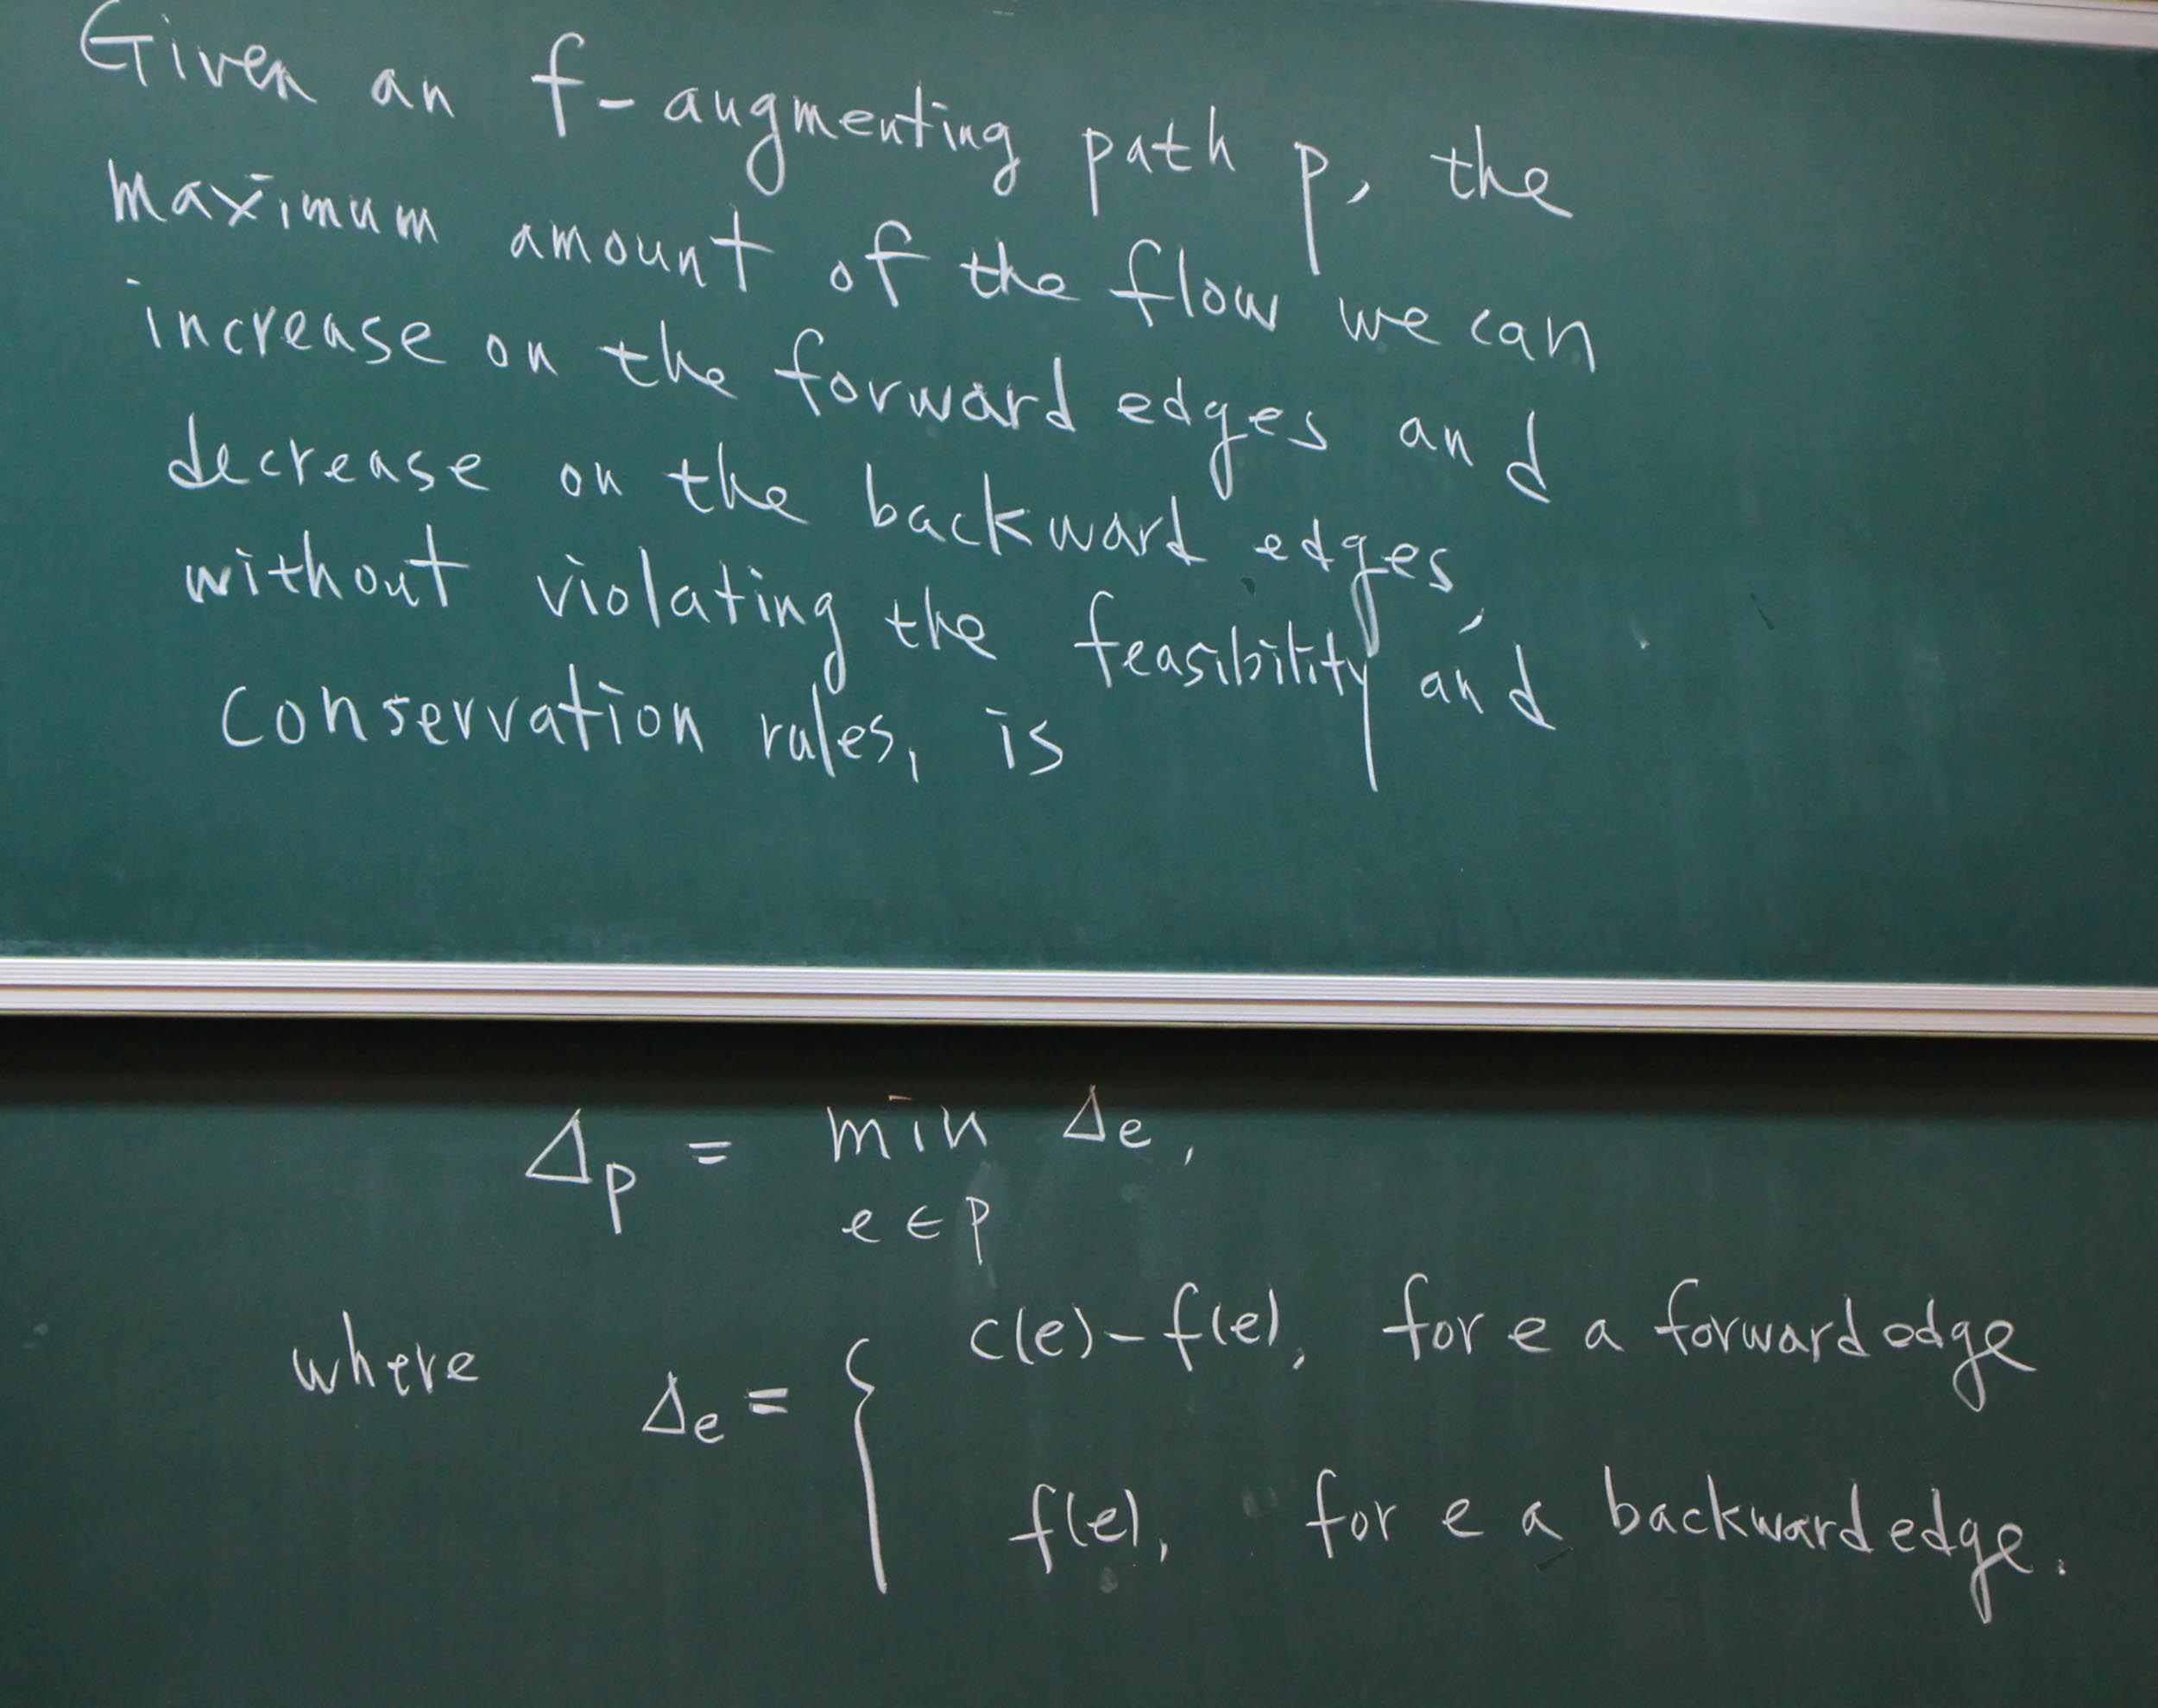 Given an f-augmenting path p, the
maximum amount of the flow we can
increase on the forward edges and
decrease on the backward edges,
without violating the feasibility and
conservation rules, is
Δp = min Δe,
e∈p
where Δe = { c(e)-f(e), for e a forward edge
f(e), for e a backward edge.